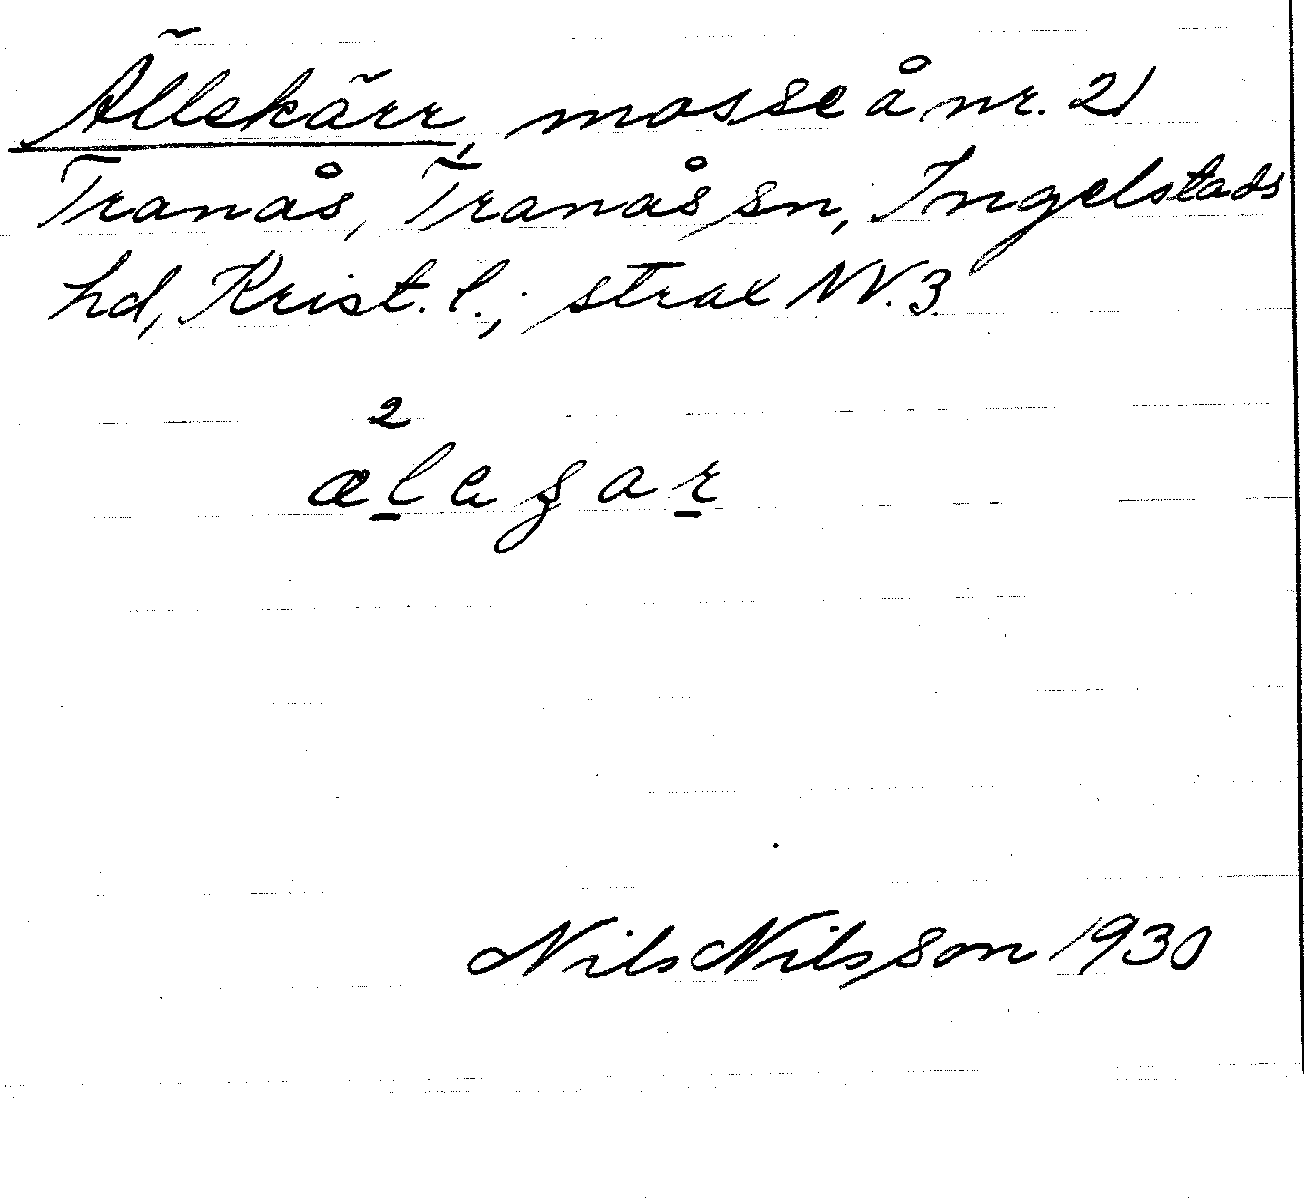 Ällekärr, mosse å nr. 21
Tranås, Tranås sn, Ingelstads
hd, Krist. l.; strax NV. 3
2
Nils Nilsson 1930